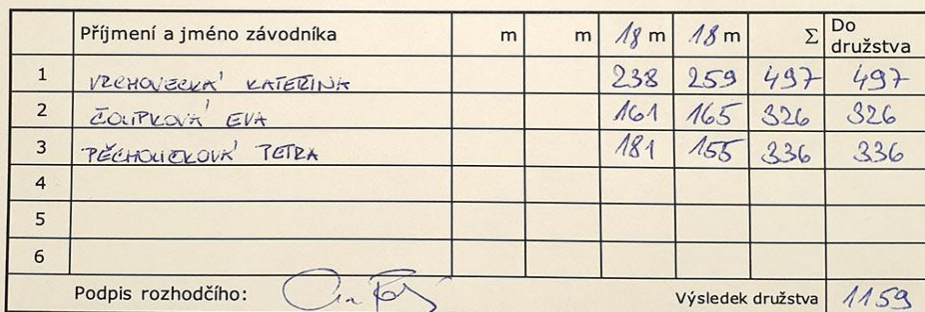 Příjmení a jméno závodníka m m 18 m 18 m Σ Do družstva
1 VRCHOVECKÁ KATEŘINA 238 259 497 497
2 ČOUPKOVÁ EVA 161 165 326 326
3 PĚCHOUČKOVÁ PETRA 181 155 336 336
4
5
6
Podpis rozhodčího: Výsledek družstva 1159